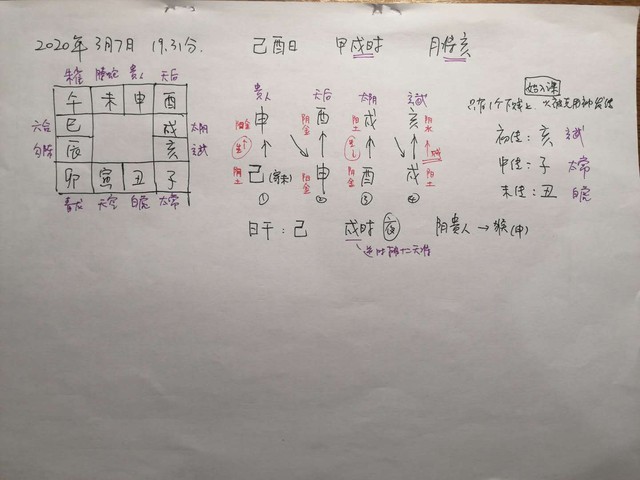 2020年 3月7日 19.31分. 己酉日 甲戌时 月将亥
朱雀 腾蛇 贵人 天后
午 未 申 酉
六合 巳 戌 太阴
勾陈 辰 亥 玄武
卯 寅 丑 子
青龙 天空 白虎 太常
贵人 天后 太阴 玄武
阳金 申 阴金 酉 阳土 戌 阴水 亥
生 生 贼
阴土 己(寄未) 阳金 申 阴金 酉 阳土 戌
① ② ③ ④
始入课
只有1个下贼上
初传: 亥 玄武
中传: 子 太常
末传: 丑 白虎
日干: 己 戌时 夜 阴贵人 → 猴(申)
逆时 十二天将